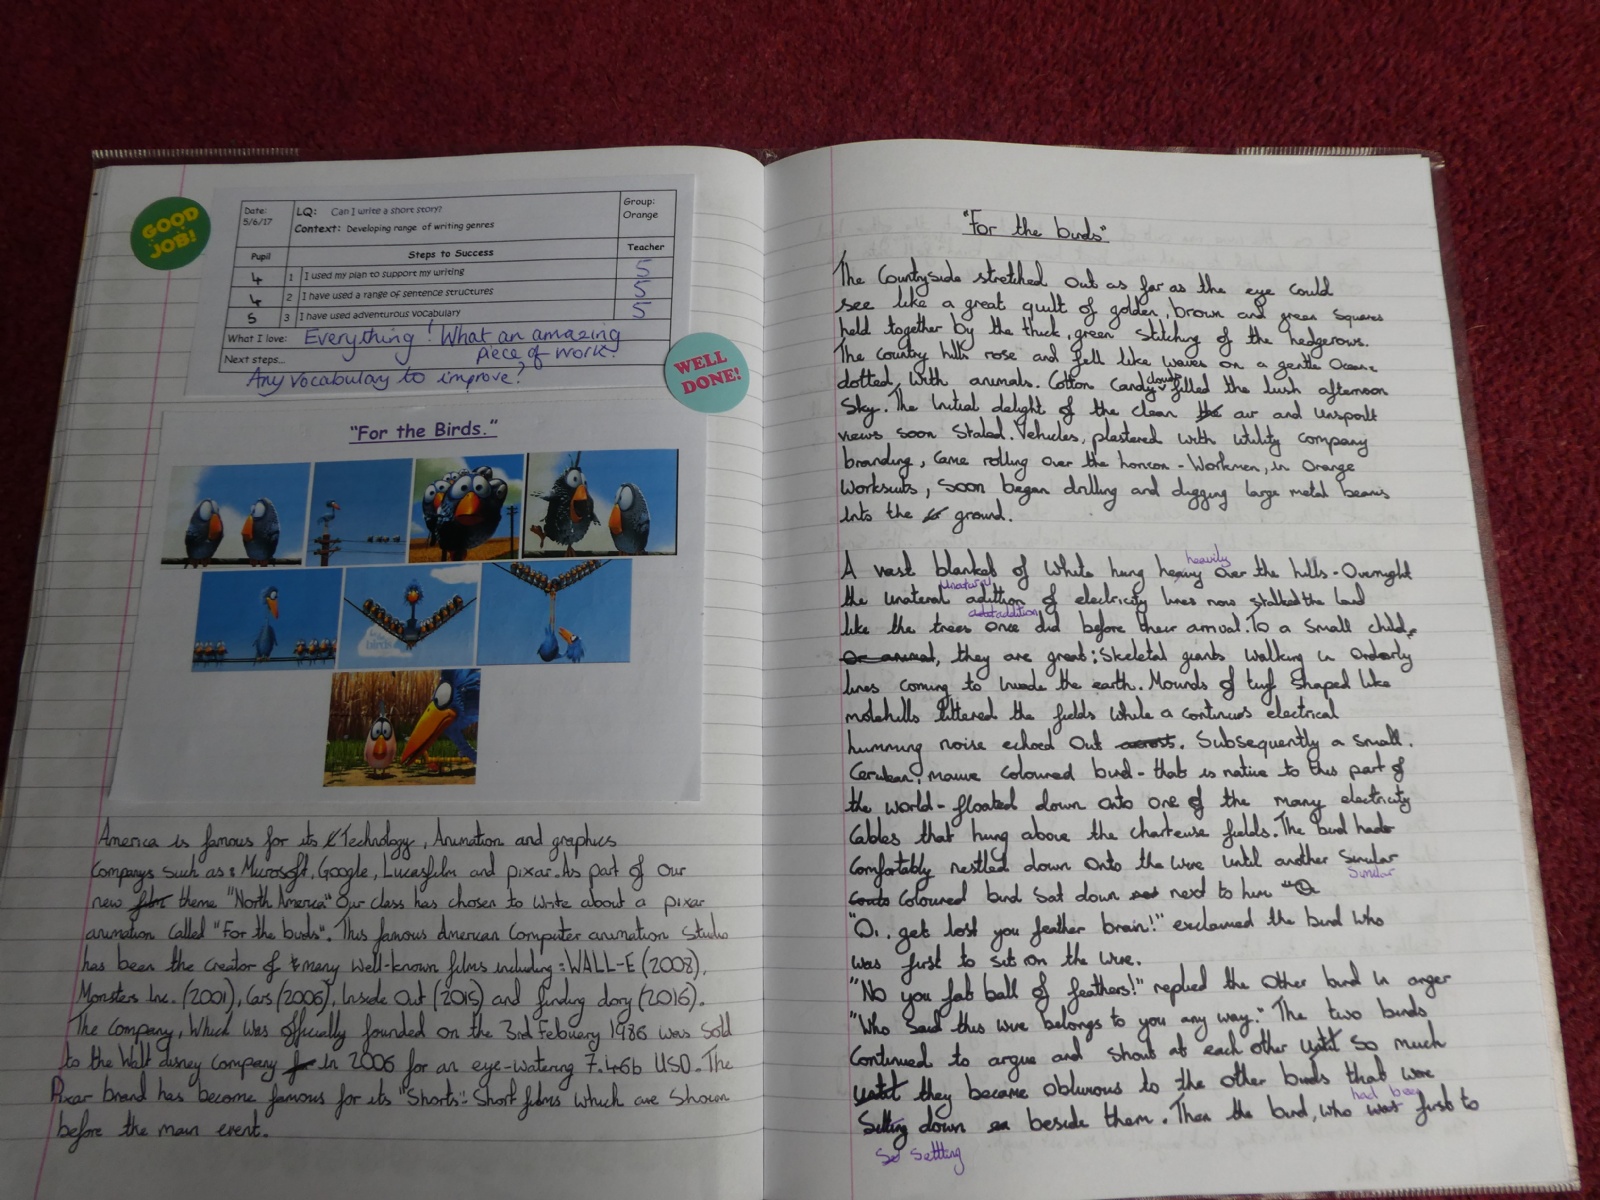 GOOD
JOB!
Date:
5/6/17
LQ: Can I write a short story?
Context: Developing range of writing genres
Group:
Orange
Pupil
Steps to Success
Teacher
4 1 I used my plan to support my writing 5
4 2 I have used a range of sentence structures 5
5 3 I have used adventurous vocabulary 5
What I love: Everything! What an amazing
piece of work!
Next steps...
Any vocabulary to improve?
WELL
DONE!
"For the Birds."
America is famous for its Technology, Animation and graphics
Companys such as: Microsoft, Google, Lucasfilm and pixar. As part of our
new theme "North America" Our class has chosen to write about a pixar
animation called "For the birds". This famous American Computer animation Studio
has been the creator of many well-known films including: WALL-E (2008),
Monsters Inc. (2001), Cars (2006), Inside Out (2015) and finding dory (2016).
The company, which was officially founded on the 3rd Febuary 1986 was sold
to the Walt disney company in 2006 for an eye-watering 7.46b USD. The
Pixar brand has become famous for its "Shorts"- Short films which are shown
before the main event.
"For the birds"
The Countryside stretched out as far as the eye could
see like a great quilt of golden, brown and green squares
held together by the thick, green stitching of the hedgerows.
The country hills rose and fell like waves on a gentle Ocean,
dotted with animals. Cotton Candy clouds filled the lush afternoon
Sky. The initial delight of the clean the air and unspoilt
views soon Staled. Vehicles, plastered with utility company
branding, came rolling over the horizon - Workmen, in Orange
Worksuits, Soon began drilling and digging large metal beams
into the ground.
A vast blanket of White hung heavy heavily over the hills - Overnight
the unateral unatural adittion addition of electricity lines now stalked the land
like the trees once did before their arrival. To a small child,
Or animal, they are great; Skeletal giants walking in Orderly
lines coming to invade the earth. Mounds of turf shaped like
molehills littered the fields while a continues electrical
humming noise echoed Out across. Subsequently a small,
Cerulean, mauve coloured bird - that is native to this part of
the world - floated down onto one of the many electricity
Cables that hung above the charteuse fields. The bird had
Comfortably nestled down onto the wire until another Simular
Similar
coloured bird sat down next to him
"Oi.. get lost you feather brain!" exclaimed the bird who
was first to sit on the wire.
"No you fat ball of feathers!" replied the other bird in anger
"Who said this wire belongs to you any way." The two birds
Continued to argue and shout at each other so much
they became oblivious to the other birds that were
Sitting down beside them. Then the bird, who was had been first to
settling